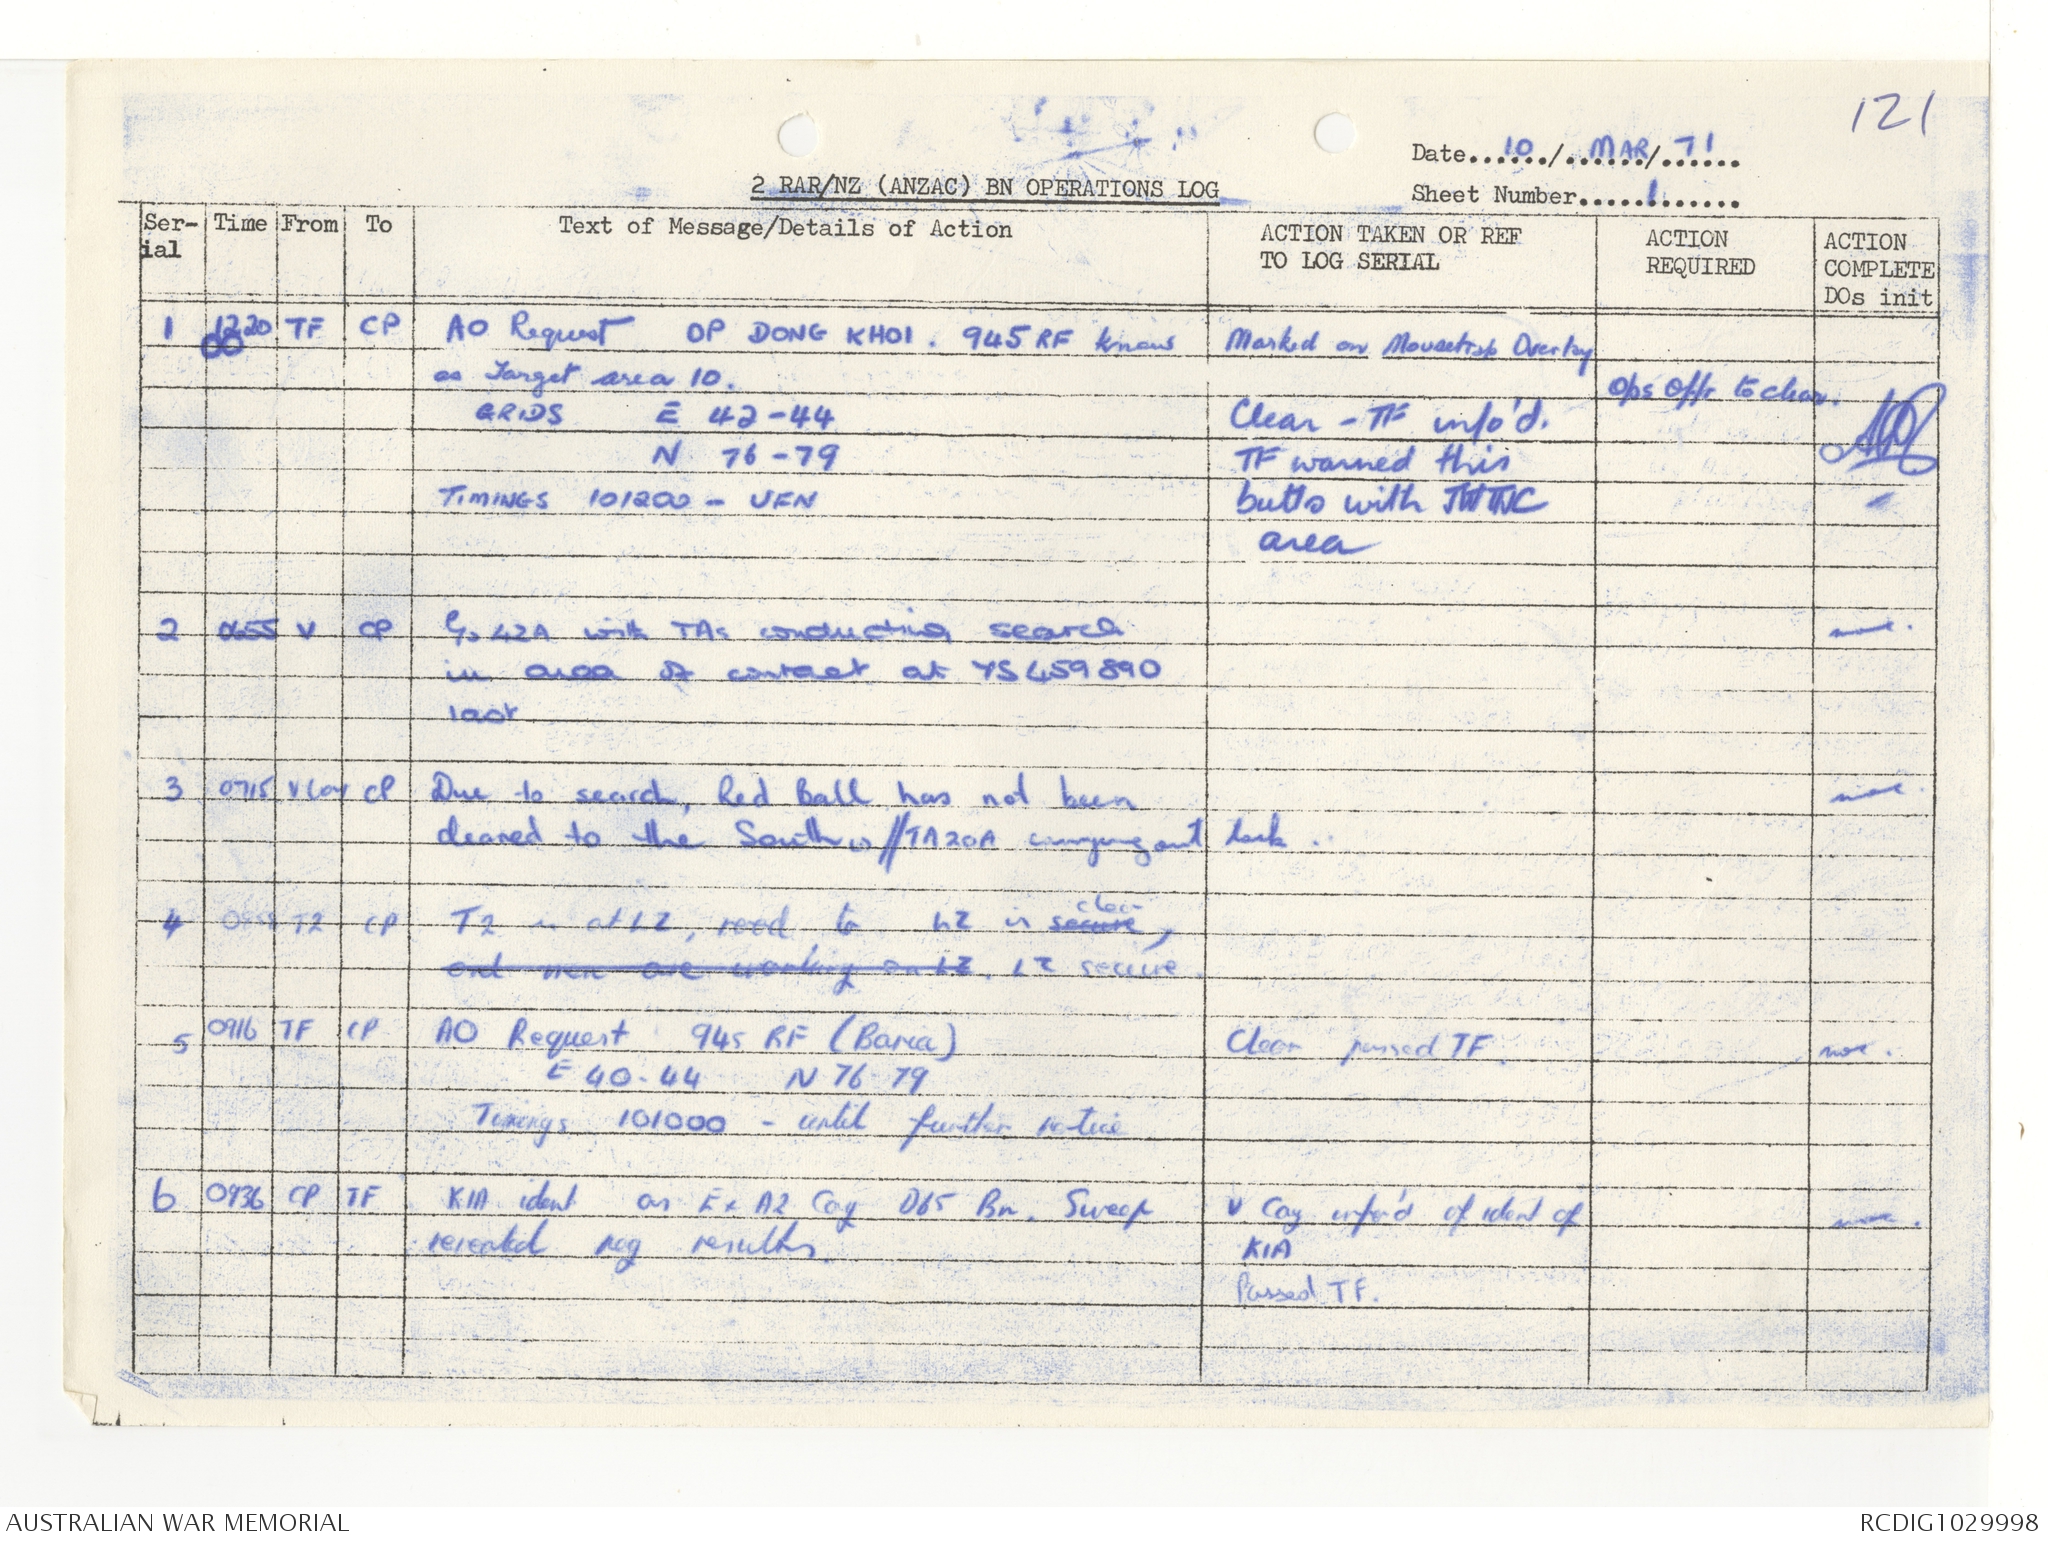 121
Date 10 / MAR / 71
2 RAR/NZ (ANZAC) BN OPERATIONS LOG
Sheet Number 1
Ser-ial Time From To Text of Message/Details of Action ACTION TAKEN OR REF TO LOG SERIAL ACTION REQUIRED ACTION COMPLETE DOs init
1 1220 TF CP AO Request OP DONG KHOI. 945 RF known Marked on Mousetrap Overlay
00
as Target area 10. Ops Offr to clear.
GRIDS E 42-44 Clear - TF info'd.
N 76-79 TF warned this
TIMINGS 101200 - UFN butts with
area
2 0655 V CP 42A with TAs conducting search
in area of contact at YS459890
last
3 0715 V Coy CP Due to search, Red Ball has not been
cleared to the South // TA20A carrying out task.
clear
4 T2 CP T2 in at LZ, road to LZ is secure,
and men are working on LZ. LZ secure.
5 0916 TF CP AO Request 945 RF (Baria) Clear passed TF.
E 40-44 N 76-79
Timings 101000 - until further notice
6 0936 CP TF KIA ident as Ex A2 Coy D65 Bn. Sweep V Coy info'd of ident of
revealed neg results. KIA
Passed TF.
AUSTRALIAN WAR MEMORIAL RCDIG1029998